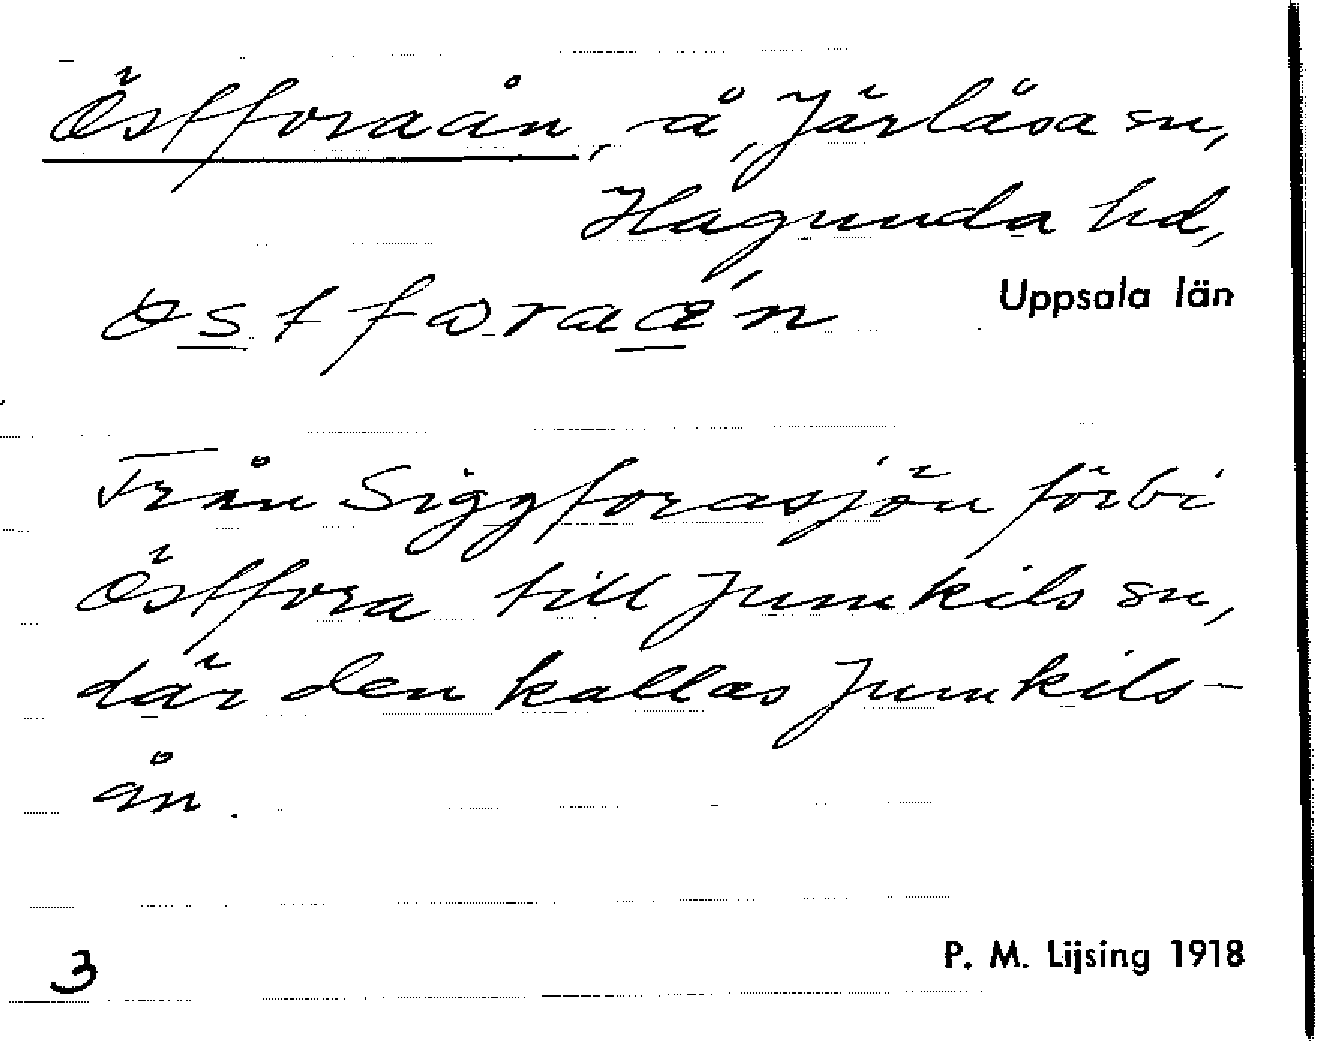 Östforaån, å, Järlåsa sn,
Hagunda hd,
Uppsala län
Från Siggforasjön förbi
Östfora till Jumkils sn,
där den kallas Jumkils-
ån.
3
P. M. Lijsing 1918